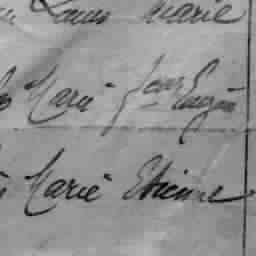 Louis Marie
Marie Jean Eugène
Marie Etienne